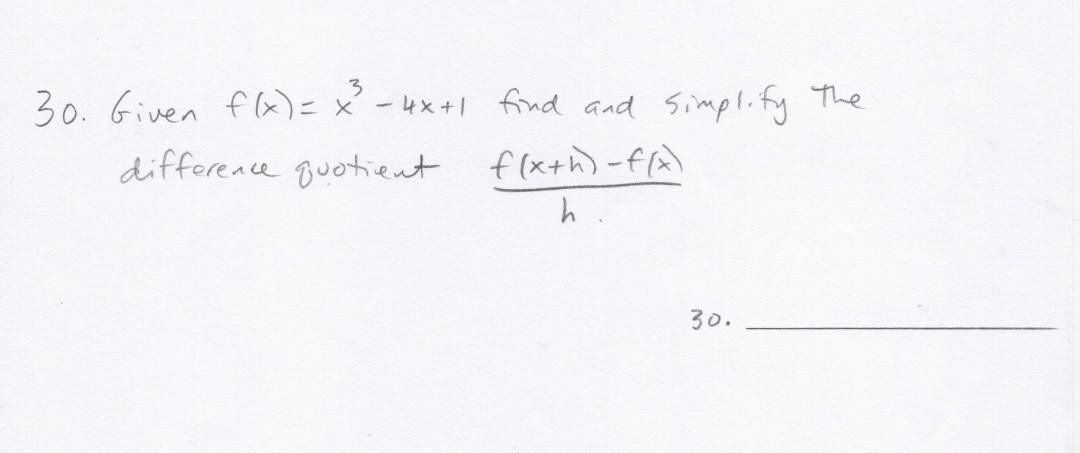 30. Given f(x) = x³ - 4x + 1 find and simplify the
difference quotient f(x+h) - f(x)
h .
30.